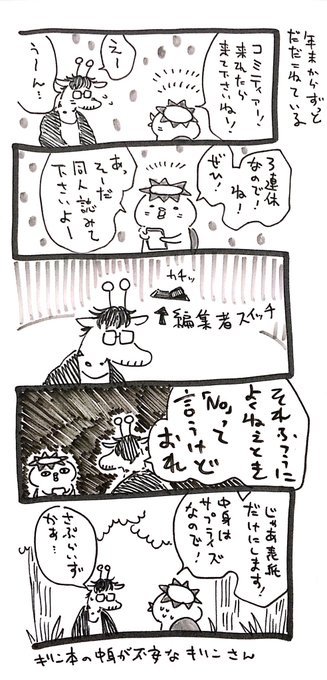 年末からずっと
だだこねている
コミティアー!
来れたら
来て下さいねー!
えー
うーん…
3連休
なので!
ね!
ぜひ!
あっ
そーだ
同人誌みて
下さいよー
カチッ
↑編集者スイッチ
それふつうに
よくねぇとき
「No」って
言うけど
おれ
じゃあ表紙
だけにします!
中身は
サプライズ
なので!
さぷらいず
かぁ…
キリン本の中身が不安なキリンさん